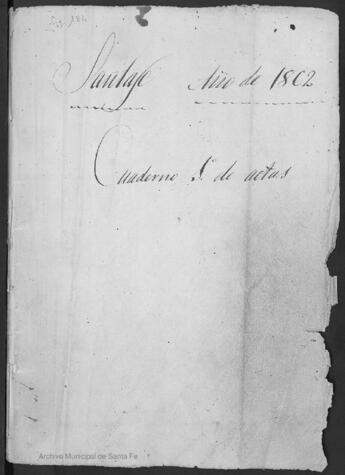 Santafe Año de 1862
Cuaderno 1º de actas
Archivo Municipal de Santa Fe